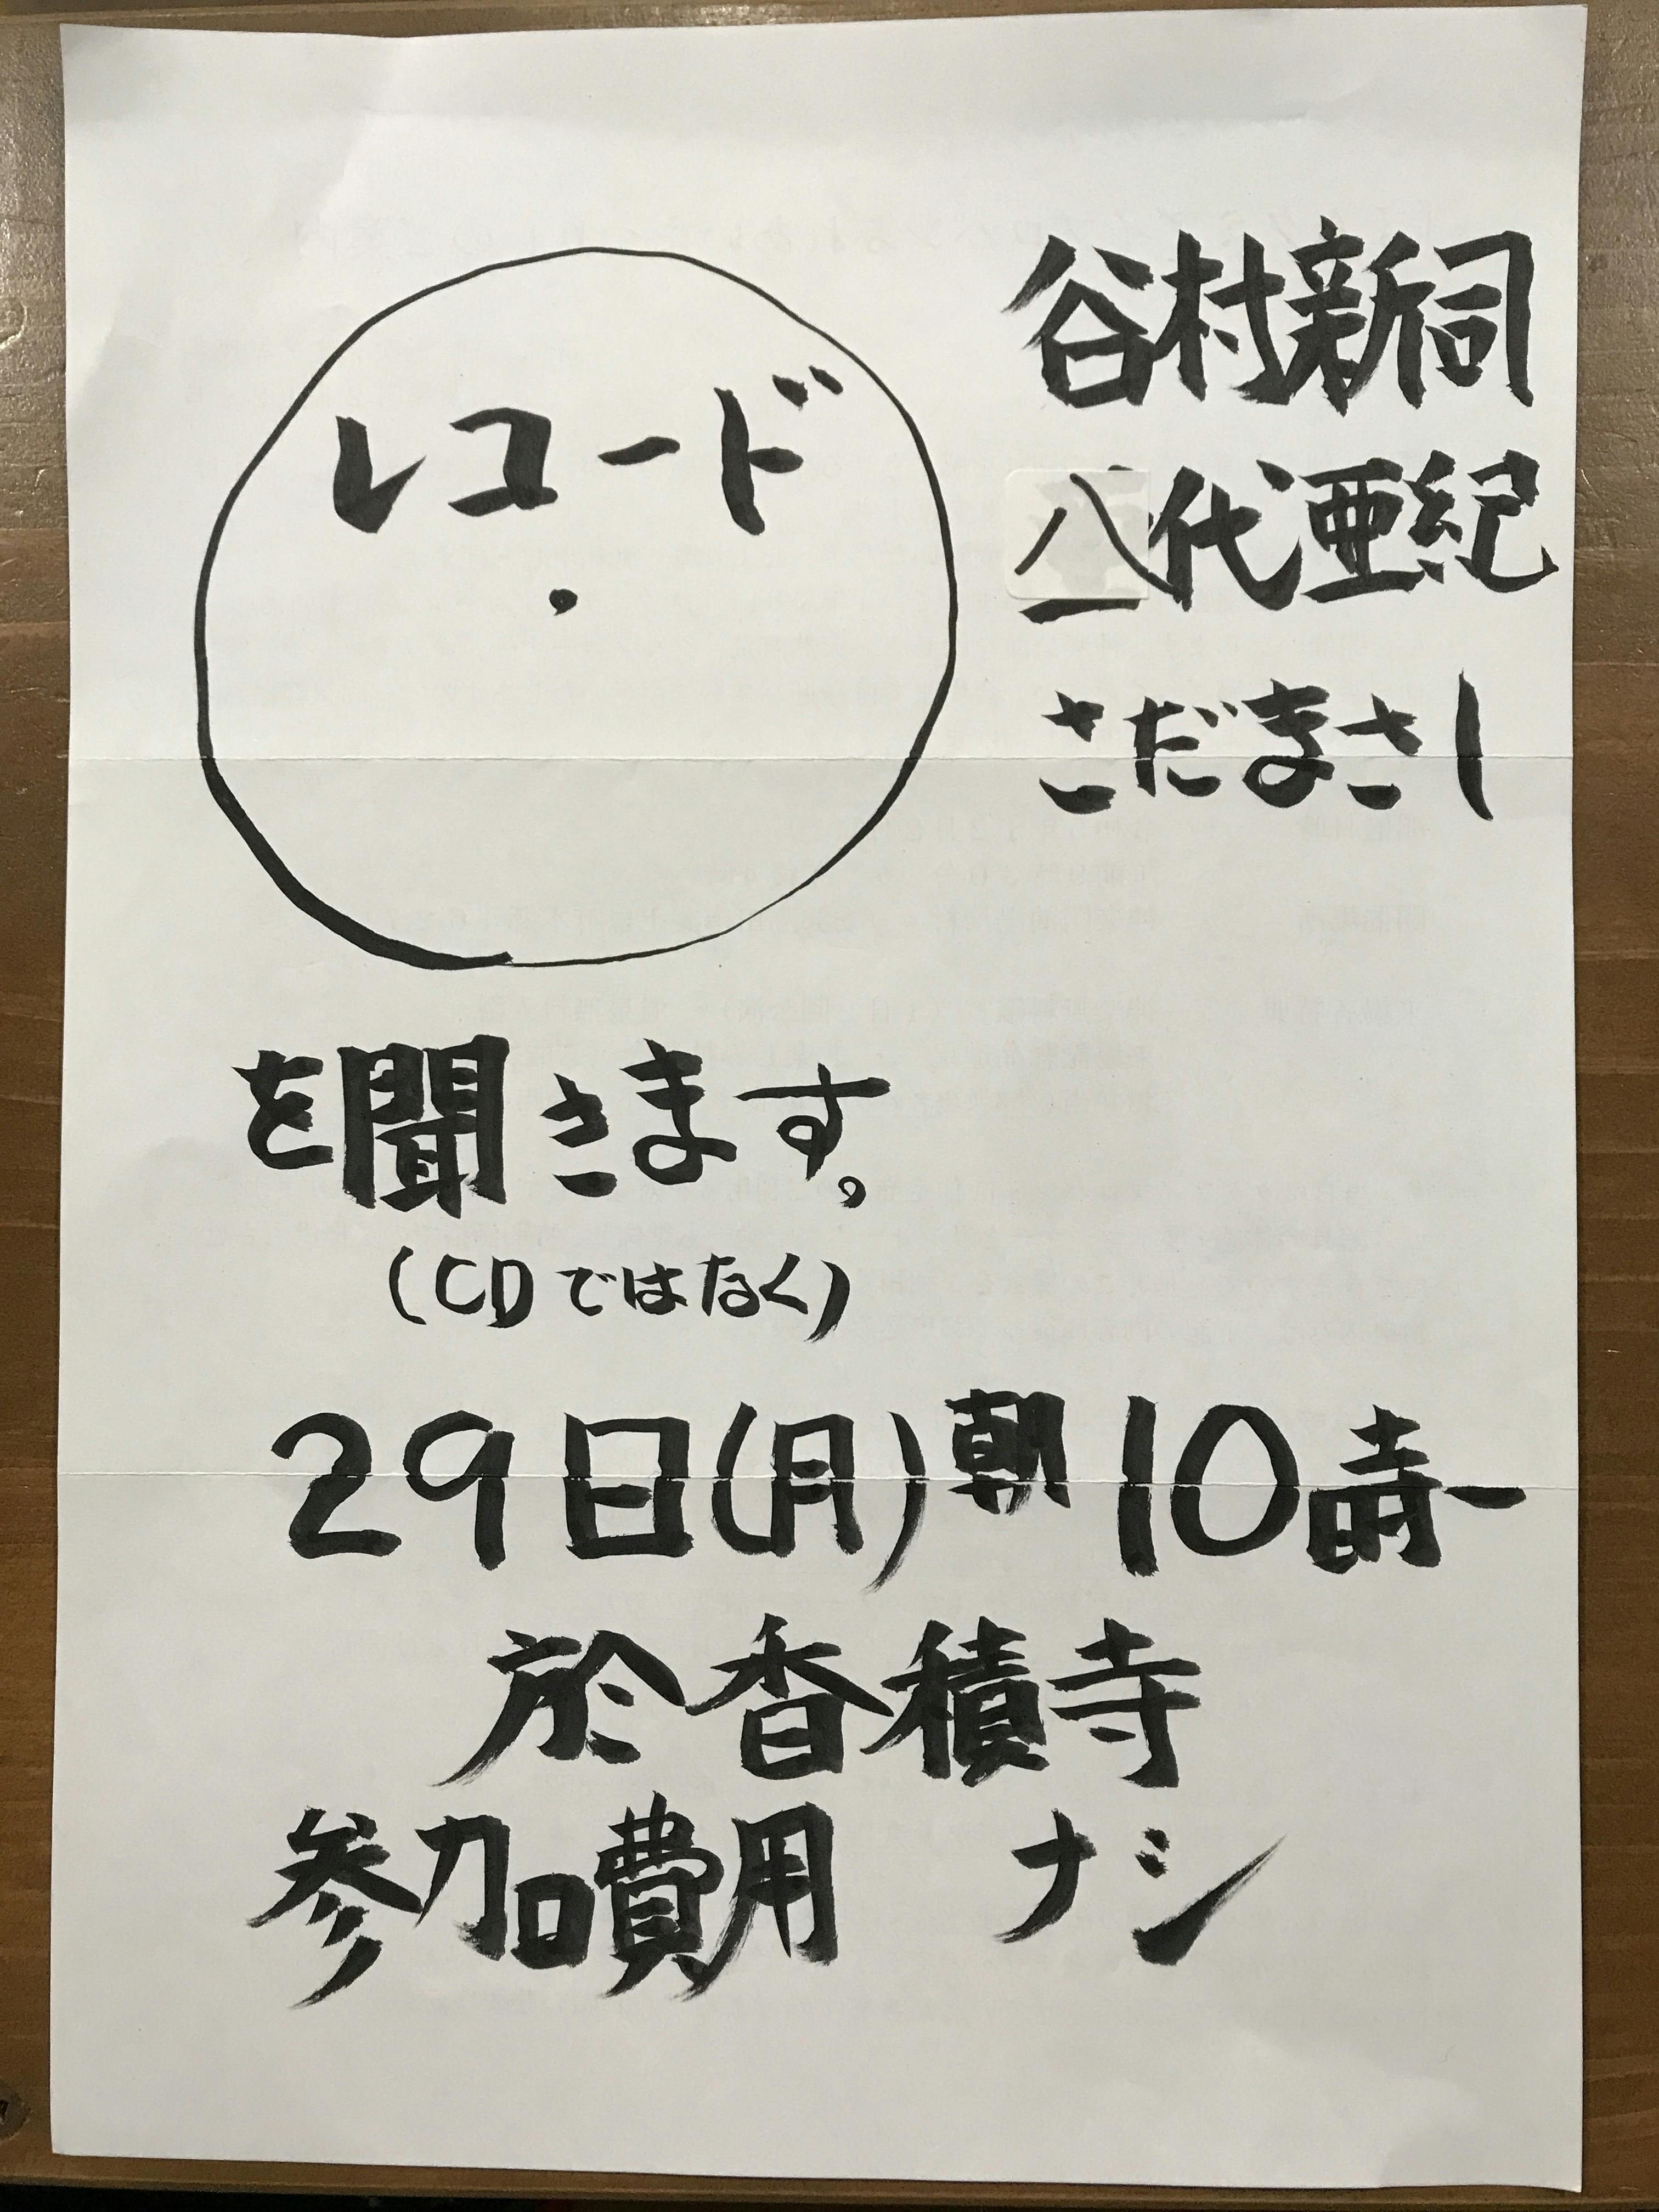 谷村新司
八代亜紀
さだまさし
レコード
を聞きます。
(CDではなく)
29日(月)朝10時ー
於香積寺
参加費用 ナシ